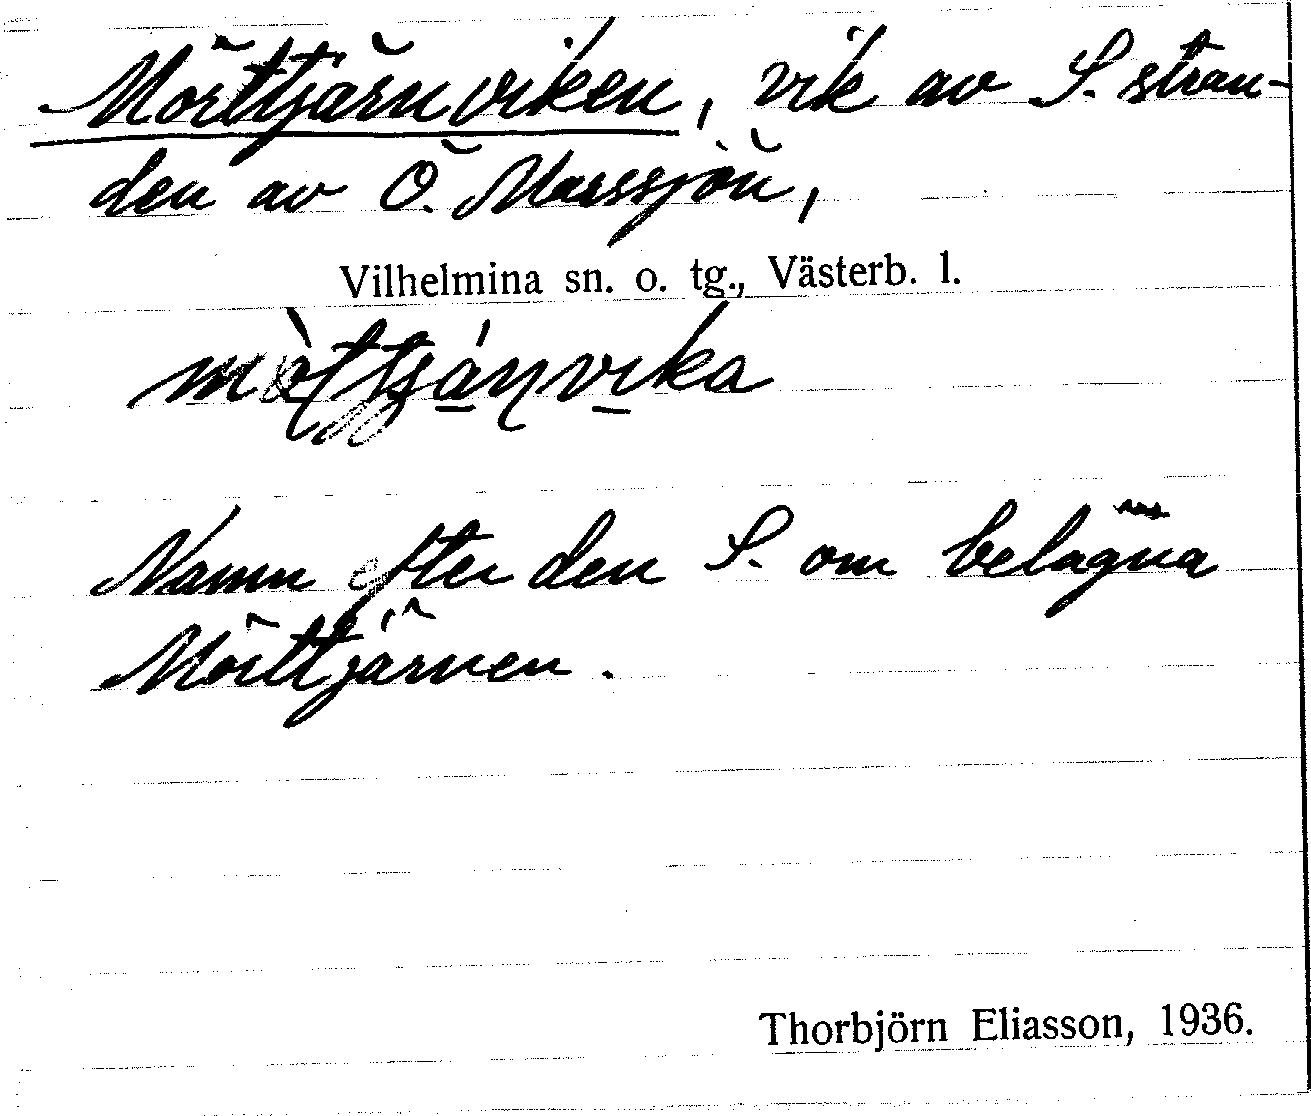 Mörttjärnviken, vik av S. stran-
den av Ö. Marssjön,
Vilhelmina sn. o. tg., Västerb. l.
Namn efter den S. om belägna
Mörttjärnen.
Thorbjörn Eliasson, 1936.